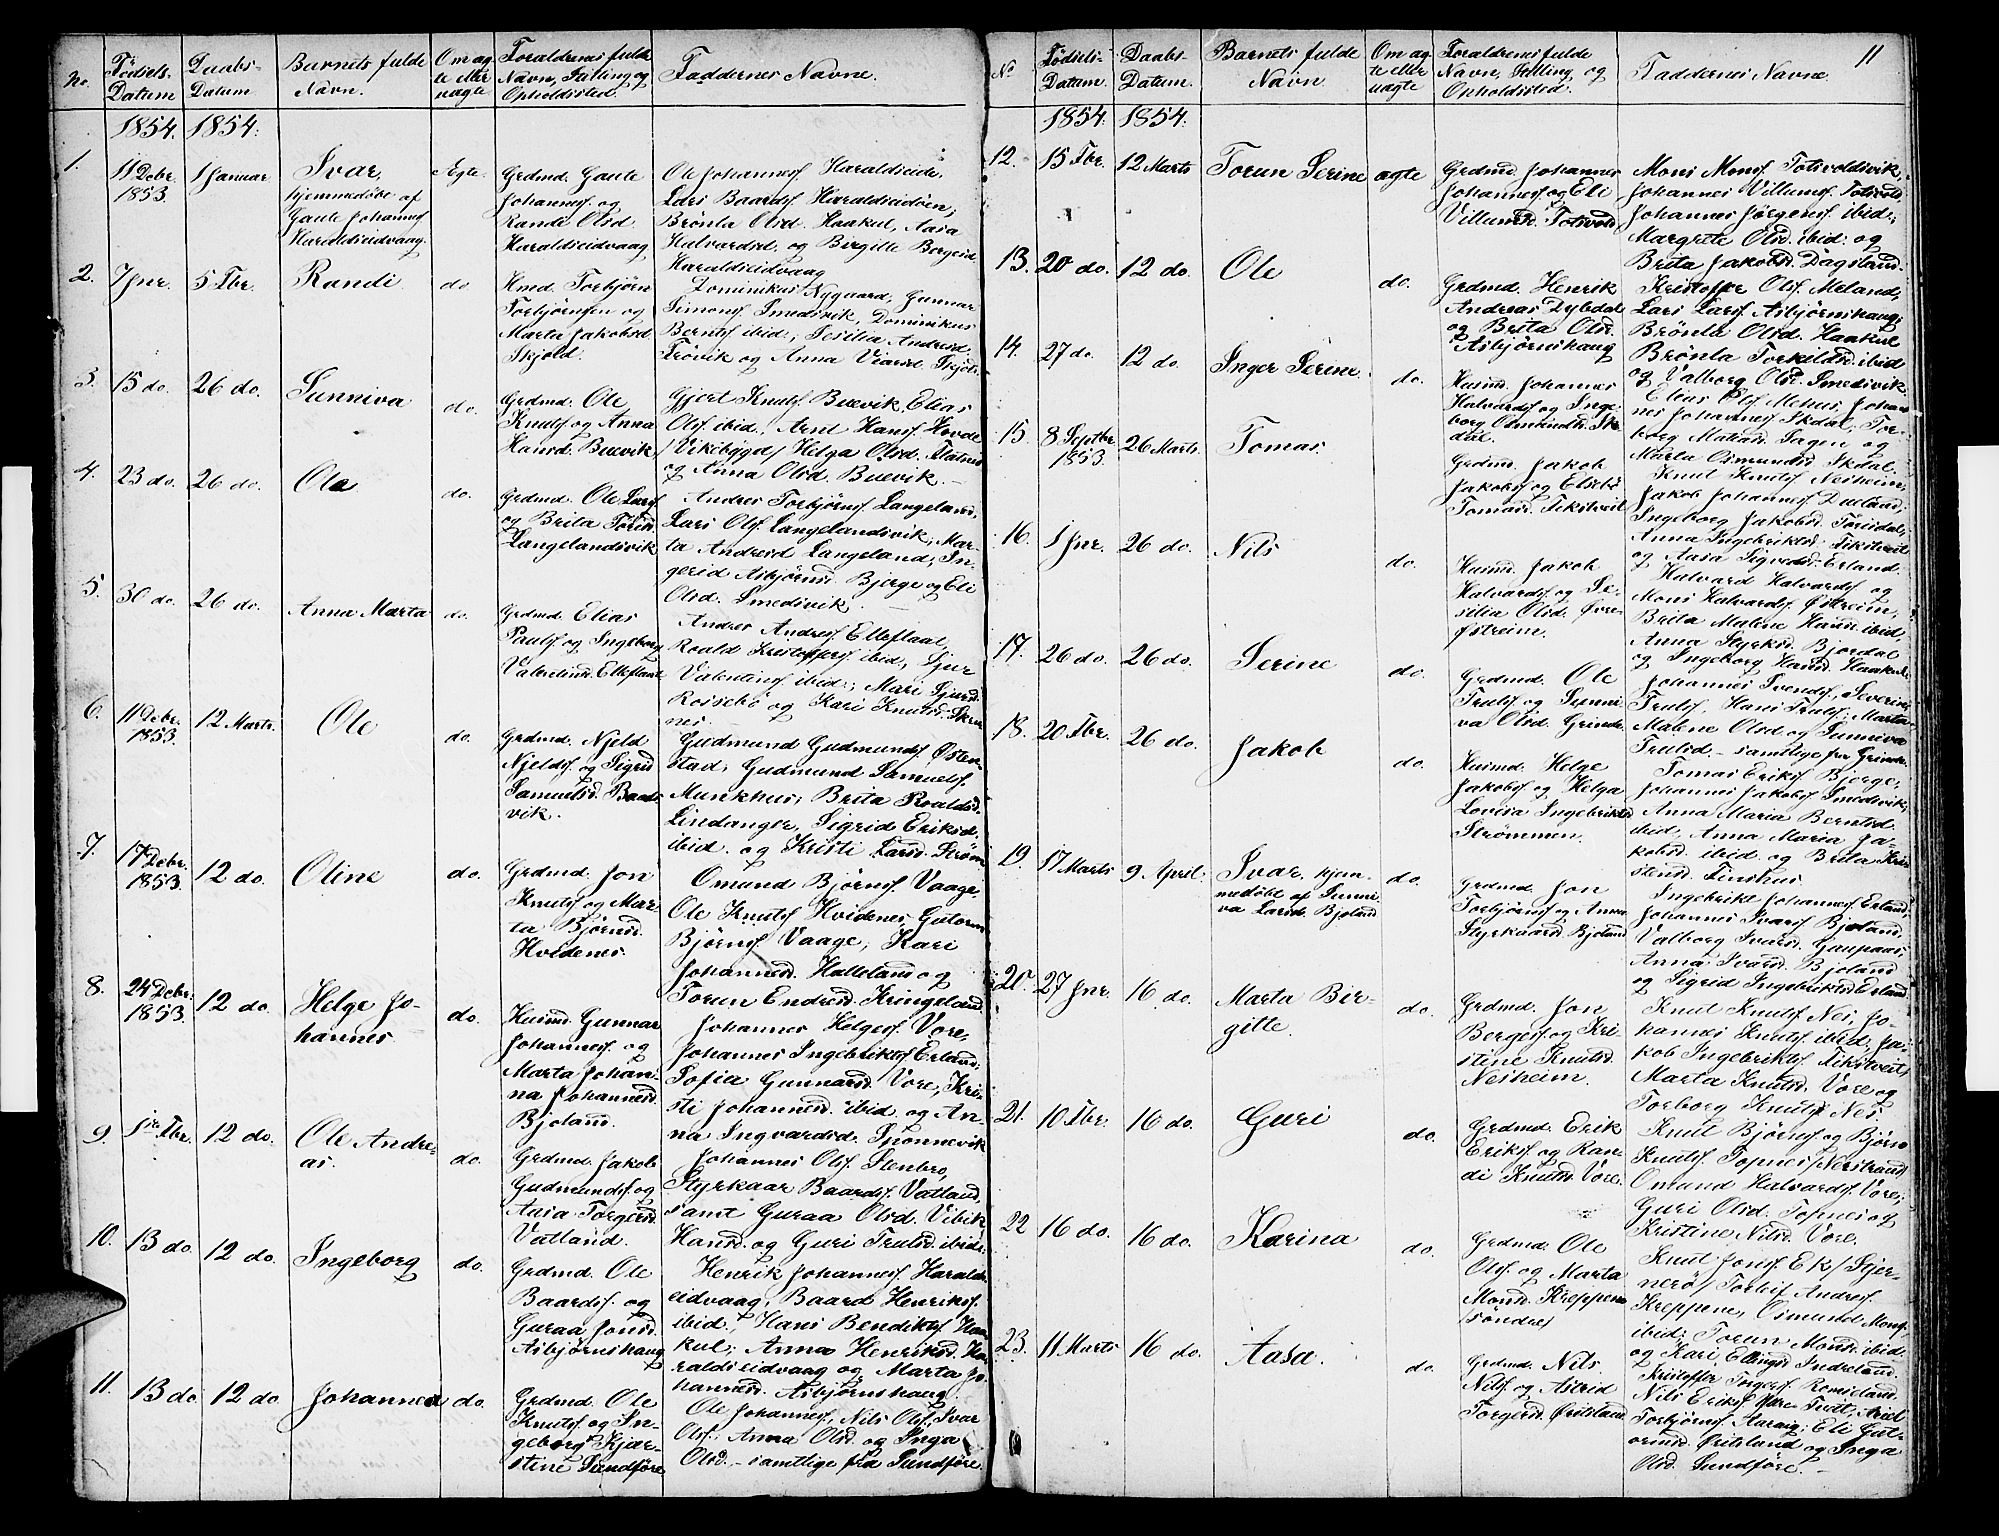 No. Fødsels-Datum Daabs-Datum Barnets fulde Navn. Om ægte eller uægte Foraldrenes fulde Navn, Stilling og Opholdssted. Faddernes Navne.
1854. 1854.
1. 11 Debr. 1853. 1 Januar Ivar,
hjemmedøbt af
Gaute Johannes
Haraldseidvaag.
Ægte.
Grdmd. Gaute
Johannesf. og
Rande Olsd.
Haraldseidvaag
Ole Johannesf. Haraldseide,
Lars Baardsf. Haraldseidøen,
Brønla Olsd. Haakul, Aasa
Halvardsd. og Birgitte Borgesd.
Haraldseidvaag
2. 7 Jnr. 5 Fbr. Randi do.
Hmd. Torbjørn
Torbjørnsen og
Marta Jakobsd.
Skjold.
Dominikus Nygaard, Gunnar
Simonsf. Smedsvik, Dominikus
Berntsf. ibid., Sesilia Andresd.
Frøvik og Anna Viarsd. Skjold.
3. 15 do. 26 do. Sunniva do.
Grdmd. Ole
Knutsf og Anna
Hansd. Buevik
Gjert Knutsf. Buevik, Elias
Olsf. ibid., Arnt Hansf. Hovde
/Vikebygd/ Helga Olsd. Flatnes
og Anna Olsd. Buevik.
4. 23 do. 26 do. Ole do.
Grdmd. Ole Larsf.
og Brita Toresd.
Langelandsvik
Andres Torbjørnsf. Langeland,
Lars Olsf. Langelandsvik, Mar-
ta Andresd. Langeland, In-
gerid Asbjørnsd. Bjerge og Eli
Olsd. Smedsvik.
5. 30 do. 26 do. Anna Marta do.
Grdmd. Elias
Paulsf og Ingeborg
Valentinsd. Elleflaat
Andres Andresf. Elleflaat,
Roald Kristoffersf. ibid., Sjur
Valentinsf. ibid., Mari Sjursd.
Roisebø og Kari Knutsd. Skru-
nes.
6. 11 Debr. 1853. 12 Marts. Ole do.
Grdmd. Njeld
Njeldsf. og Sigrid
Samuelsd. Baads-
vik.
Gudmund Gudmundsf. Østen-
stad, Gudmund Samuelsf.
Munkhus, Brita Roaldsd.
Lindanger, Sigrid Eriksd.
ibid. og Kristi Larsd. Strøm
7. 17 Debr. 1853. 12 do. Oline do.
Grdmd. Jon
Knutsf og Mar-
ta Bjørnsd.
Hvidenes.
Omund Bjørnsf. Vaage,
Ole Knutsf Hvidenes, Gutorm
Bjørnsf Vaage, Kari
Johannesd. Halleland og
Torun Endresd. Kringeland
8. 24 Debr. 1853. 12 do. Helge Jo-
hannes do.
Husmd. Gunnar
Johannesf. og
Marta Johan-
na Johannesd.
Bjoland.
Johannes Helgesf. Vore,
Johannes Ingebriktsf Erland,
Sofia Gunnarsd. Vore, Kri-
sti Johannesd. ibid. og An-
na Ingvardsd. Tjonnevik
9. 1ste Fbr. 12 do. Ole Andre-
as. do.
Grdmd. Jakob
Gudmundsf. og
Aasa Torgersd.
Vatland.
Johannes Olsf. Stenbro,
Styrkaar Baardsf. Vatland,
samt Guraa Olsd. Vibik
Hansd. og Guri Trulsd. ibid.
10. 13 do. 12 do. Ingeborg do.
Grdmd. Ole
Baardsf. og
Guraa Jonsd.
Asbjørnshaug
Henrik Johannesf. Harald-
eidvaag, Baard Henriksf.
ibid., Hans Bendiktsf. Haa-
kul, Anna Henriksd. Ha-
raldseidvaag og Marta Jo-
hannesd. Asbjørnshaug.
11. 13 do. 12 do. Johannes do.
Grdmd. Ole
Knutsf og In-
geborg Kjer-
stine Sundføre
Ole Johannesf., Nils Olsf., Ivar
Olsf., Anna Olsd. og Inga
Olsd. – samtlige fra Sundføre.
11
No Fødsels-Datum. Daabs-Datum. Barnets fulde Navn. Om ægte eller uægte Foraldrenes fulde Navn, Stilling, og Opholdssted. Faddernes Navne.
1854. 1854.
12. 15 Fbr. 12 Marts Torun Serine ægte
Grdmd. Johannes
Johannesf og Eli
Villumsd. Totsvolds
Mons Monsf. Totsvoldsvik,
Johannes Villumsf. Totsvold,
Johannes Jørgensf. ibid.,
Margrete Olsd. ibid. og
Brita Jakobsd. Dagsland.
13. 20 do. 12 do. Ole do.
Grdmd. Henrik
Andreas Dybdal
og Brita Olsd.
Asbjørnshaug
Kristoffer Olsf. Meland,
Lars Larsf. Asbjørnshaug,
Brønla Olsd. Haakul
Brønla Torkildsd. ibid
og Valborg Olsd. Smedsvik
14. 27 do. 12 do. Inger Serine do.
Husmd. Johannes
Halvardsf og Inge-
borg Osmundsd. Sk-
dal.
Elias Olsf Mehus, Johan-
nes Johannesf Skdal, Tor-
borg Matiasd. Sagen og
Marta Osmundsd. Skdal.
15. 8 Septbr. 1853. 26 Marts. Tomas.
Grdmd. Jakob
Jakobsf og Elsebe
Tomasd. Tekstveit
Knut Knutsf Nesheim,
Jakob Johannesf Dueland,
Ingeborg Jakobsd. Toresdal,
Anna Ingebriktsd. Tekstveit
og Aasa Sigvedsd. Erland.
16. 1 Jnr. 26 do. Nils do.
Husmd. Jakob
Halvardsf og Se-
silia Olsd. Øvre-
Østreim.
Halvard Halvardsf og
Mons Halvardsf Østreim,
Brita Malene Hansd. ibid,
Anna Styrksd. Bjordal
og Ingeborg Hansd. Haakul.
17. 26 do. 26 do. Serine do.
Grdmd. Ole
Trulsf og Sunni-
va Olsd. Grinde
Johannes Svendsf., Severin
Trulsf, Hans Trulsf, Marta
Malene Olsd og Sunniva
Trulsd. – samtlige fra Grinde.
18. 20 Fbr. 26 do. Jakob do.
Husmd. Helge
Jakobsf og Helga
Lovisa Ingebriktsd
Strømmen.
Tomas Eriksf Bjerge,
Johannes Jakobsf Smedsvik,
Anna Maria Berntsd.
ibid, Anna Maria Ja-
kobsd. ibid. og Brita Kri-
stensd. Finshus.
19. 17 Marts 9 April. Ivar, hjem-
medøbt af Sunni-
va Larsd. Bjoland do.
Grdmd. Jon
Torbjørnsf og Anna
Styrkaarsd. Bjoland
Ingebrikt Johannesf Erland,
Johannes Ivarsf Bjoland,
Valborg Ivarsd. Gaupaas,
Anna Ivarsd. Bjoland
og Sigrid Ingebriktsd. Erland.
20. 27 Jnr. 16 do. Marta Bir-
gitte. do.
Grdmd. Jon
Borgesf og Kri-
stine Knutsd.
Nesheim.
Knut Knutsf Nes, Jo-
hannes Knutsf. ibid., Ja-
kob Ingebriktsf Tekstveit,
Marta Knutsd. Vore og
Torborg Knutsf Nes
21. 10 Fbr. 16 do. Guri do.
Grdmd. Erik
Eriksf og Ran-
di Knutsd. Vore.
Knut Bjørnsf og Bjørn
Knutsf. Topnes/Nerstrand/
Omund Halvardsf Vore,
Guri Olsd. Topnes og
Kristine Nilsd. Vore.
22 16 do. 16 do. Karina do.
Grdmd. Ole
Olsf. og Marta
Monsd. Kreppene
/søndre/
Knut Jonsf Ek/Sjer-
nerø/ Torleif Andresf
Kreppene, Osmund Monsf.
ibid., Torun Monsd. ibid.
og Kari Ellingsd Indreland.
23. 11 Marts 16 do. Aasa. do.
Grdmd. Nils
Nilsf. og Astrid
Torgersd. Øritsland
Kristoffer Torgersf. Romsland
Nils Eriksf Øvre-Tveit, Ariel
Torbjørnsf. Aarvig, Eli Gut-
ormsd. Øritsland og Inga
Olsd. Sundføre. –